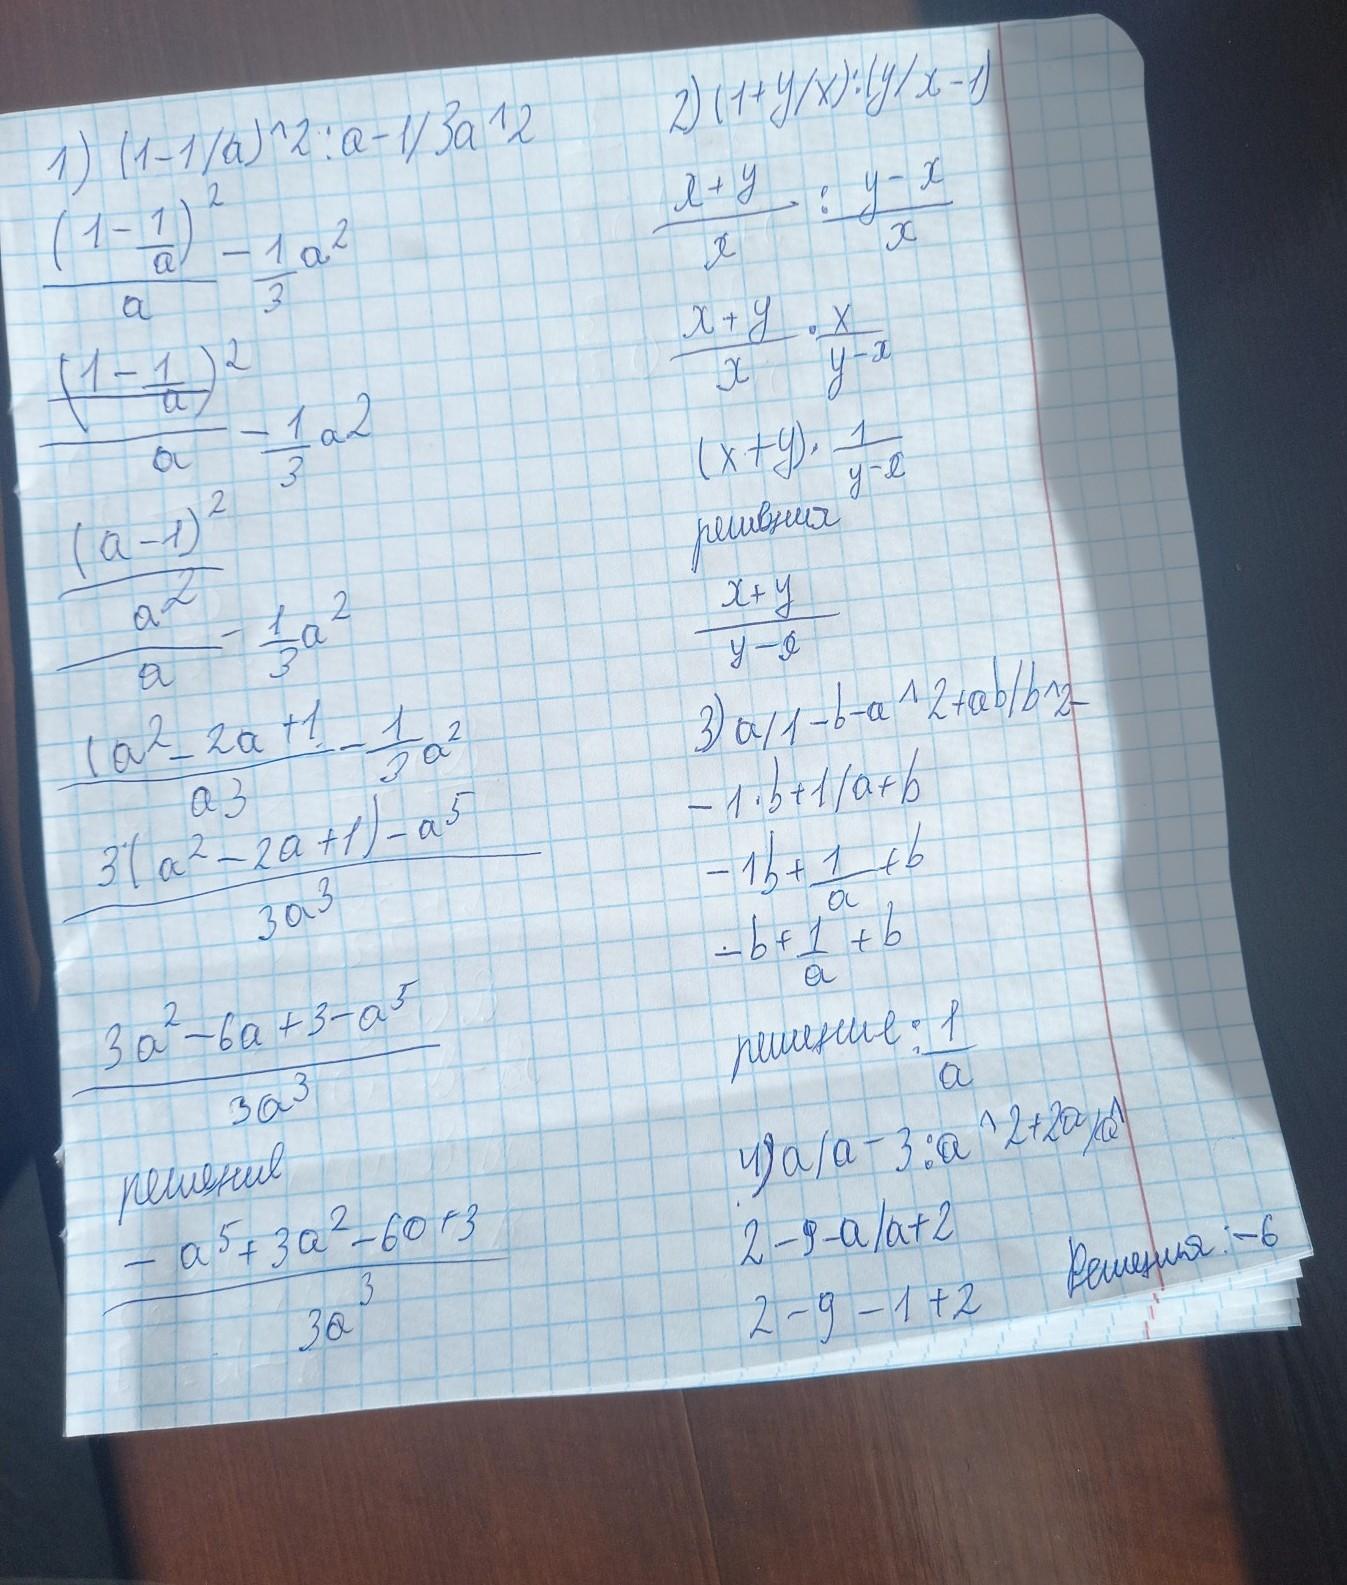 1) (1-1/a)^2:a-1/3a^2
(1-1/a)²/a - 1/3 a²
(1-1/a)²/a - 1/3 a2
(a-1)²/a²/a - 1/3 a²
(a²-2a+1/a3 - 1/3 a²
3(a²-2a+1)-a⁵/3a³
3a²-6a+3-a⁵/3a³
решение
-a⁵+3a²-6a+3/3a³
2) (1+y/x):(y/x-1)
x+y/x : y-x/x
x+y/x · x/y-x
(x+y)· 1/y-x
решения
x+y/y-x
3) a/1-b-a^2+ab/b^2-
-1·b+1/a+b
-1b+1/a+b
-b+1/a+b
решение: 1/a
4) a/a-3:a^2+2a/a^
2-9-a/a+2
2-9-1+2
Решения: -6